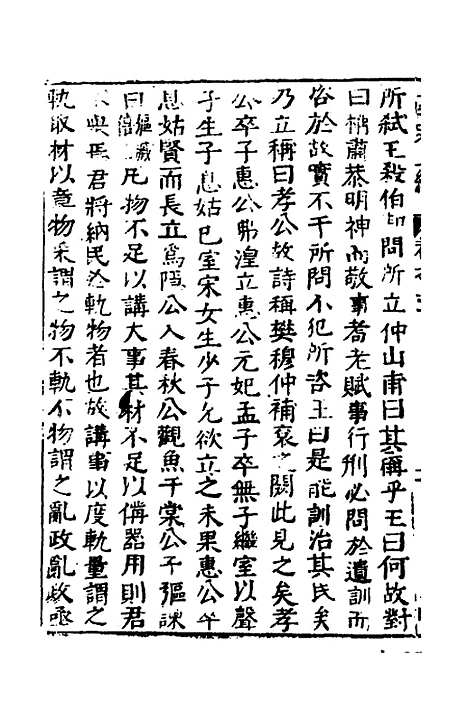 所弒王殺伯御問所立仲山甫曰其稱乎王曰何故對
曰稱肅恭明神而敬事耇老賦事行刑必問於遺訓而
咨於故實不干所問不犯所咨王曰是能訓治其民矣
乃立稱曰孝公故詩稱樊穆仲補袞之闕此見之矣孝
公卒子惠公弗湟立惠公元妃孟子卒無子繼室以聲
子生子息姑已室宋女生少子允欲立之未果惠公卒
息姑賢而長立為隱公入春秋公觀魚于棠公子彄諫
曰凡物不足以講大事其材不足以備器用則君
不與焉君將納民於軌物者也故講事以度軌量謂之
軌取材以章物采謂之物不軌不物謂之亂政亂政亟